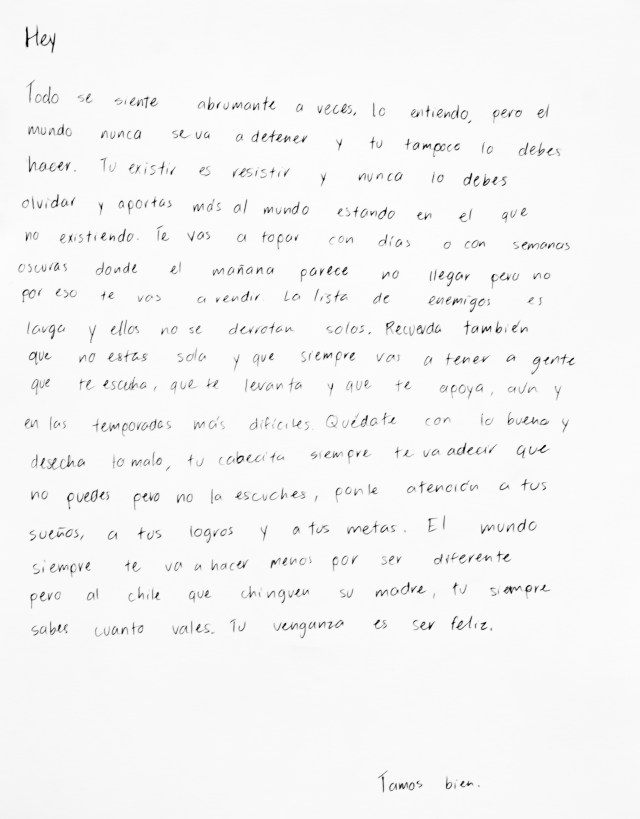 Hey
Todo se siente abrumante a veces, lo entiendo, pero el
mundo nunca se va a detener y tu tampoco lo debes
hacer. Tu existir es resistir y nunca lo debes
olvidar y aportas más al mundo estando en el que
no existiendo. Te vas a topar con días o con semanas
oscuras donde el mañana parece no llegar pero no
por eso te vas a rendir La lista de enemigos es
larga y ellos no se derrotan solos. Recuerda también
que no estas sola y que siempre vas a tener a gente
que te escuha, que te levanta y que te apoya, aún y
en las temporadas más difíciles. Quédate con lo bueno y
desecha lo malo, tu cabecita siempre te va a decir que
no puedes pero no la escuches, ponle atención a tus
sueños, a tus logros y a tus metas. El mundo
siempre te va a hacer menos por ser diferente
pero al chile que chinguen su madre, tu siempre
sabes cuanto vales. Tu venganza es ser feliz.
Tamos bien.